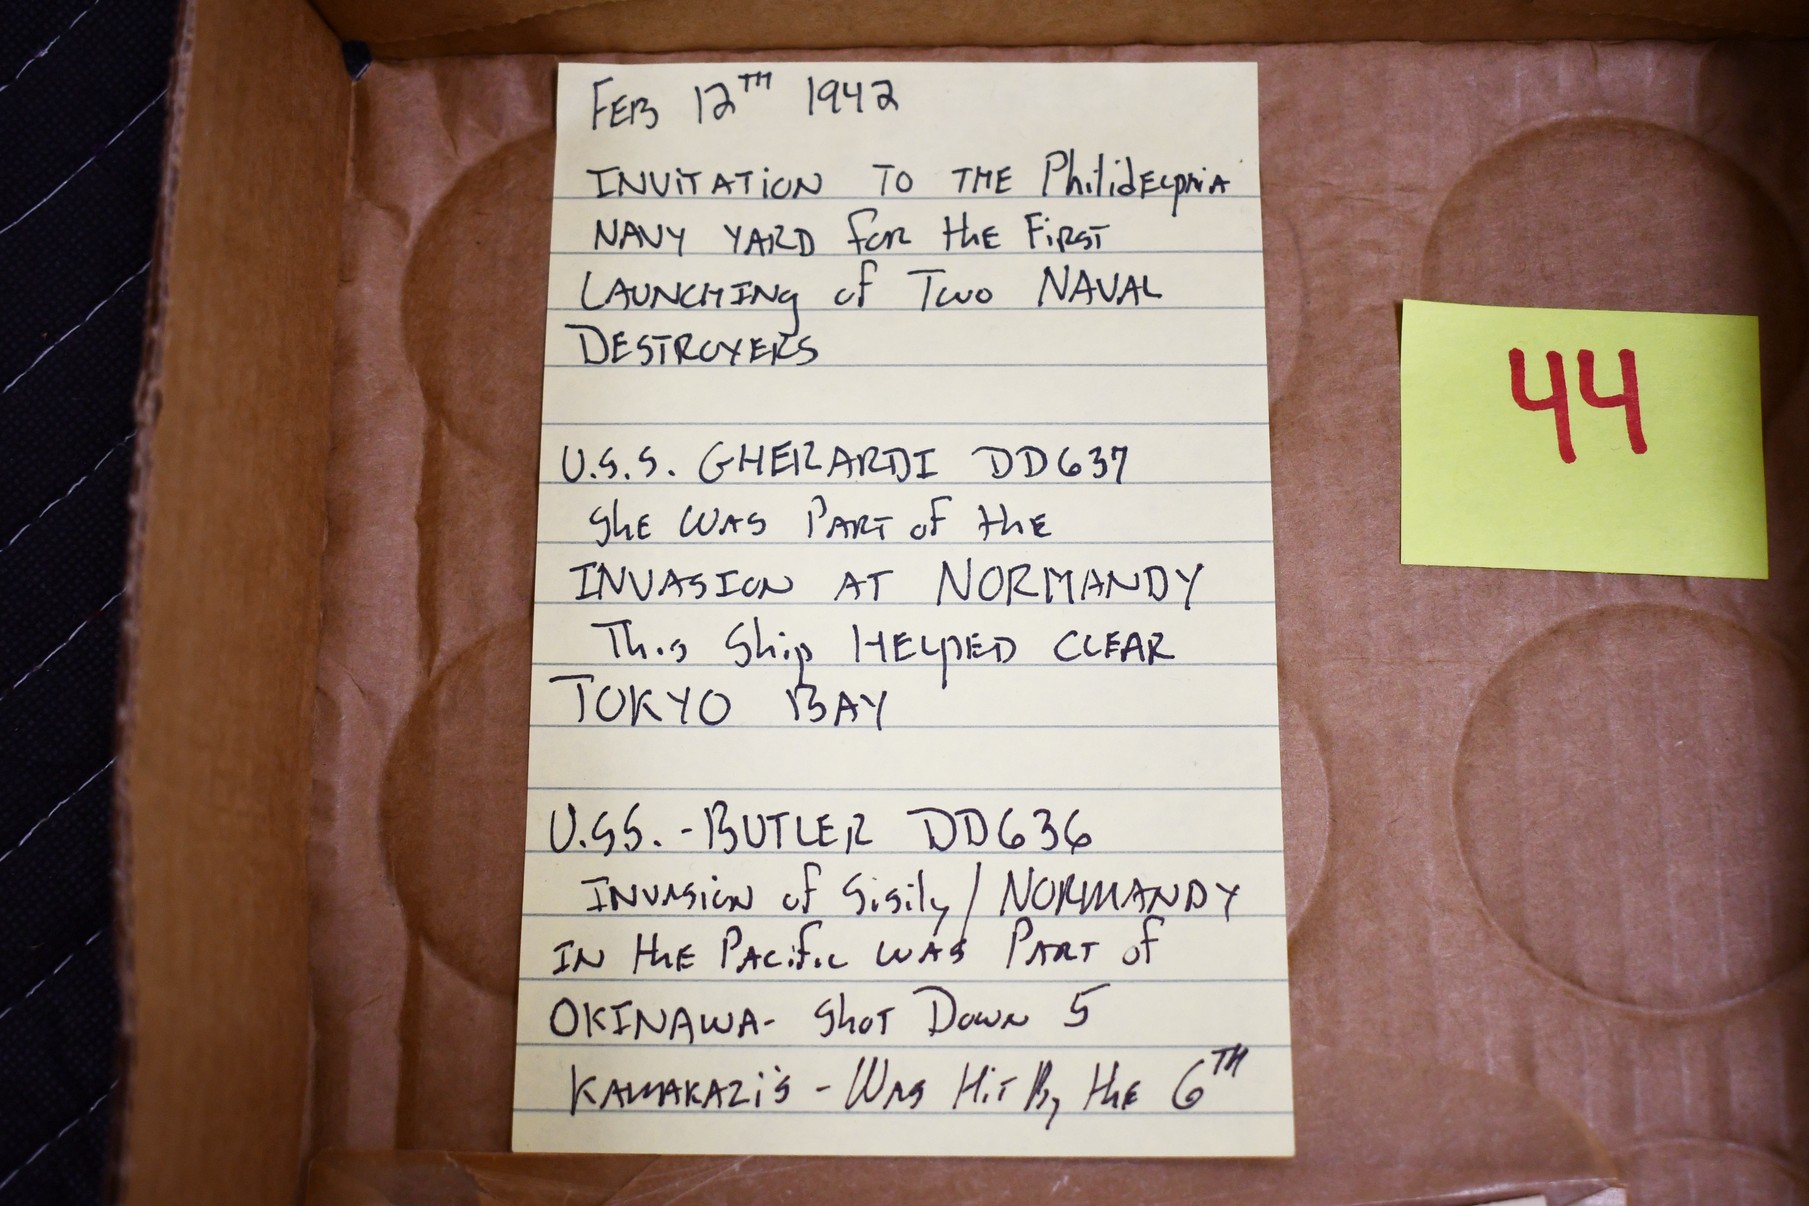 FEB 12TH 1942
INVITATION TO THE Philidelphia
NAVY YARD for the First
LAUNCHING of Two NAVAL
DESTROYERS
U.S.S. GHERARDI DD637
She WAS PART of the
INVASION AT NORMANDY
This Ship HELPED CLEAR
TOKYO BAY
U.SS. - BUTLER DD636
INVASION of Sisily / NORMANDY
IN the PACific WAS PART of
OKINAWA - Shot Down 5
KAMAKAZi's - WAS Hit By the 6TH
44